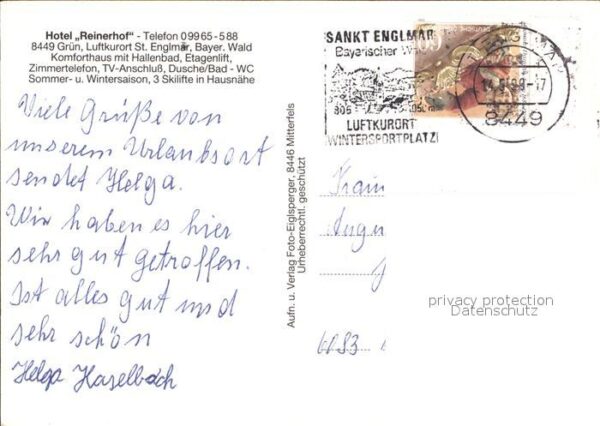 Hotel „Reinerhof" - Telefon 09965-588
8449 Grün, Luftkurort St. Englmar, Bayer. Wald
Komforthaus mit Hallenbad, Etagenlift,
Zimmertelefon, TV-Anschluß, Dusche/Bad - WC
Sommer- u. Wintersaison, 3 Skilifte in Hausnähe
Viele Grüße von
unserem Urlaubsort
sendet Helga.
Wir haben es hier
sehr gut getroffen.
Ist alles gut und
sehr schön
Helga Haselbach
Aufn. u. Verlag Foto-Eiglsperger, 8446 Mitterfels
Urheberrechtl. geschützt
SANKT ENGLMAR
Bayerischer Wald
805
LUFTKURORT
WINTERSPORTPLATZ
60
8449
privacy protection
Datenschutz